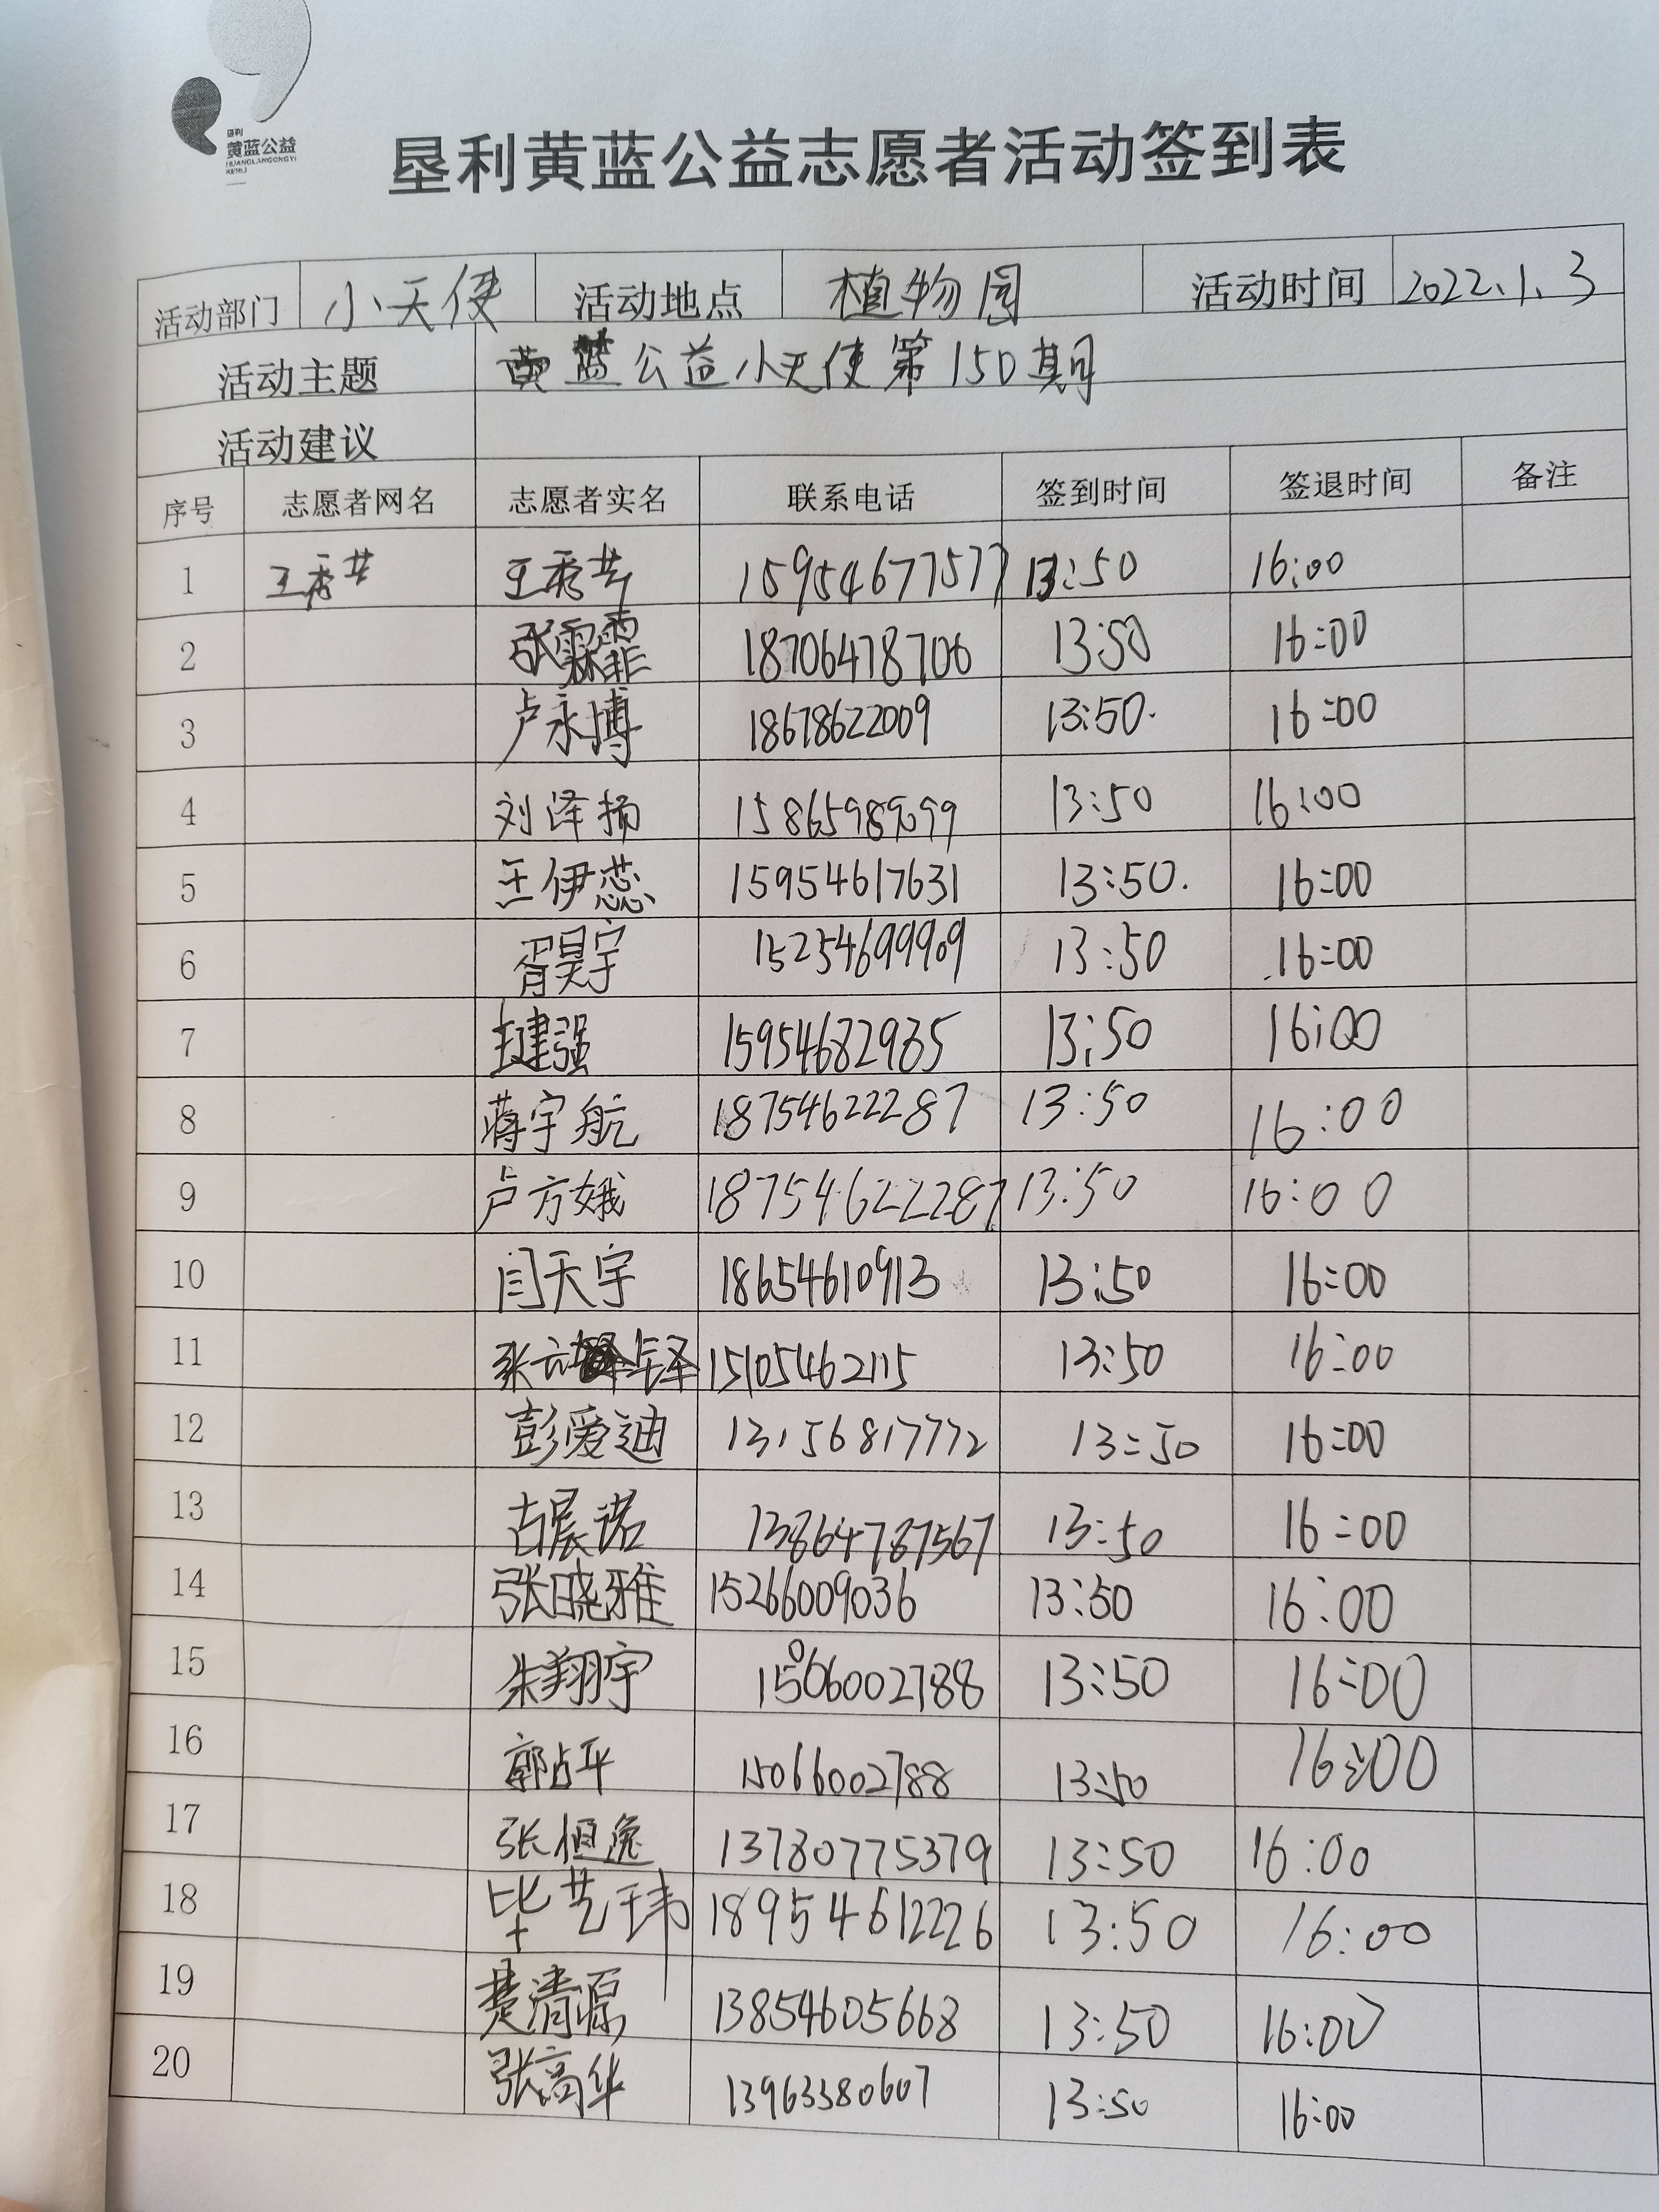 垦利
黄蓝公益
HUANGLANGONGYI
KENLI
垦利黄蓝公益志愿者活动签到表
活动部门 小天使 活动地点 植物园 活动时间 2022.1.3
活动主题 黄蓝公益小天使第150期
活动建议
序号 志愿者网名 志愿者实名 联系电话 签到时间 签退时间 备注
1 王秀芸 王秀芸 15954677577 13:50 16:00
2 张霖霏 18706478706 13:50 16:00
3 卢永博 18678622009 13:50. 16:00
4 刘泽扬 15865989099 13:50 16:00
5 王伊蕊 15954617631 13:50. 16:00
6 胥昊宇 15254699909 13:50 16:00
7 王建强 15954682985 13:50 16:00
8 蒋宇航 18754622287 13:50 16:00
9 卢方娥 18754622287 13:50 16:00
10 闫天宇 18654610913 13:50 16:00
11 张云泽 15105462115 13:50 16:00
12 彭爱迪 13156817772 13:50 16:00
13 古晨诺 13864787567 13:50 16:00
14 张晓雅 15266009036 13:50 16:00
15 朱翔宇 15066002788 13:50 16:00
16 郭占平 15066002788 13:50 16:00
17 张恒逸 13780775379 13:50 16:00
18 毕芸玮 18954612226 13:50 16:00
19 楚清源 13854605668 13:50 16:00
20 张高华 13963380607 13:50 16:00